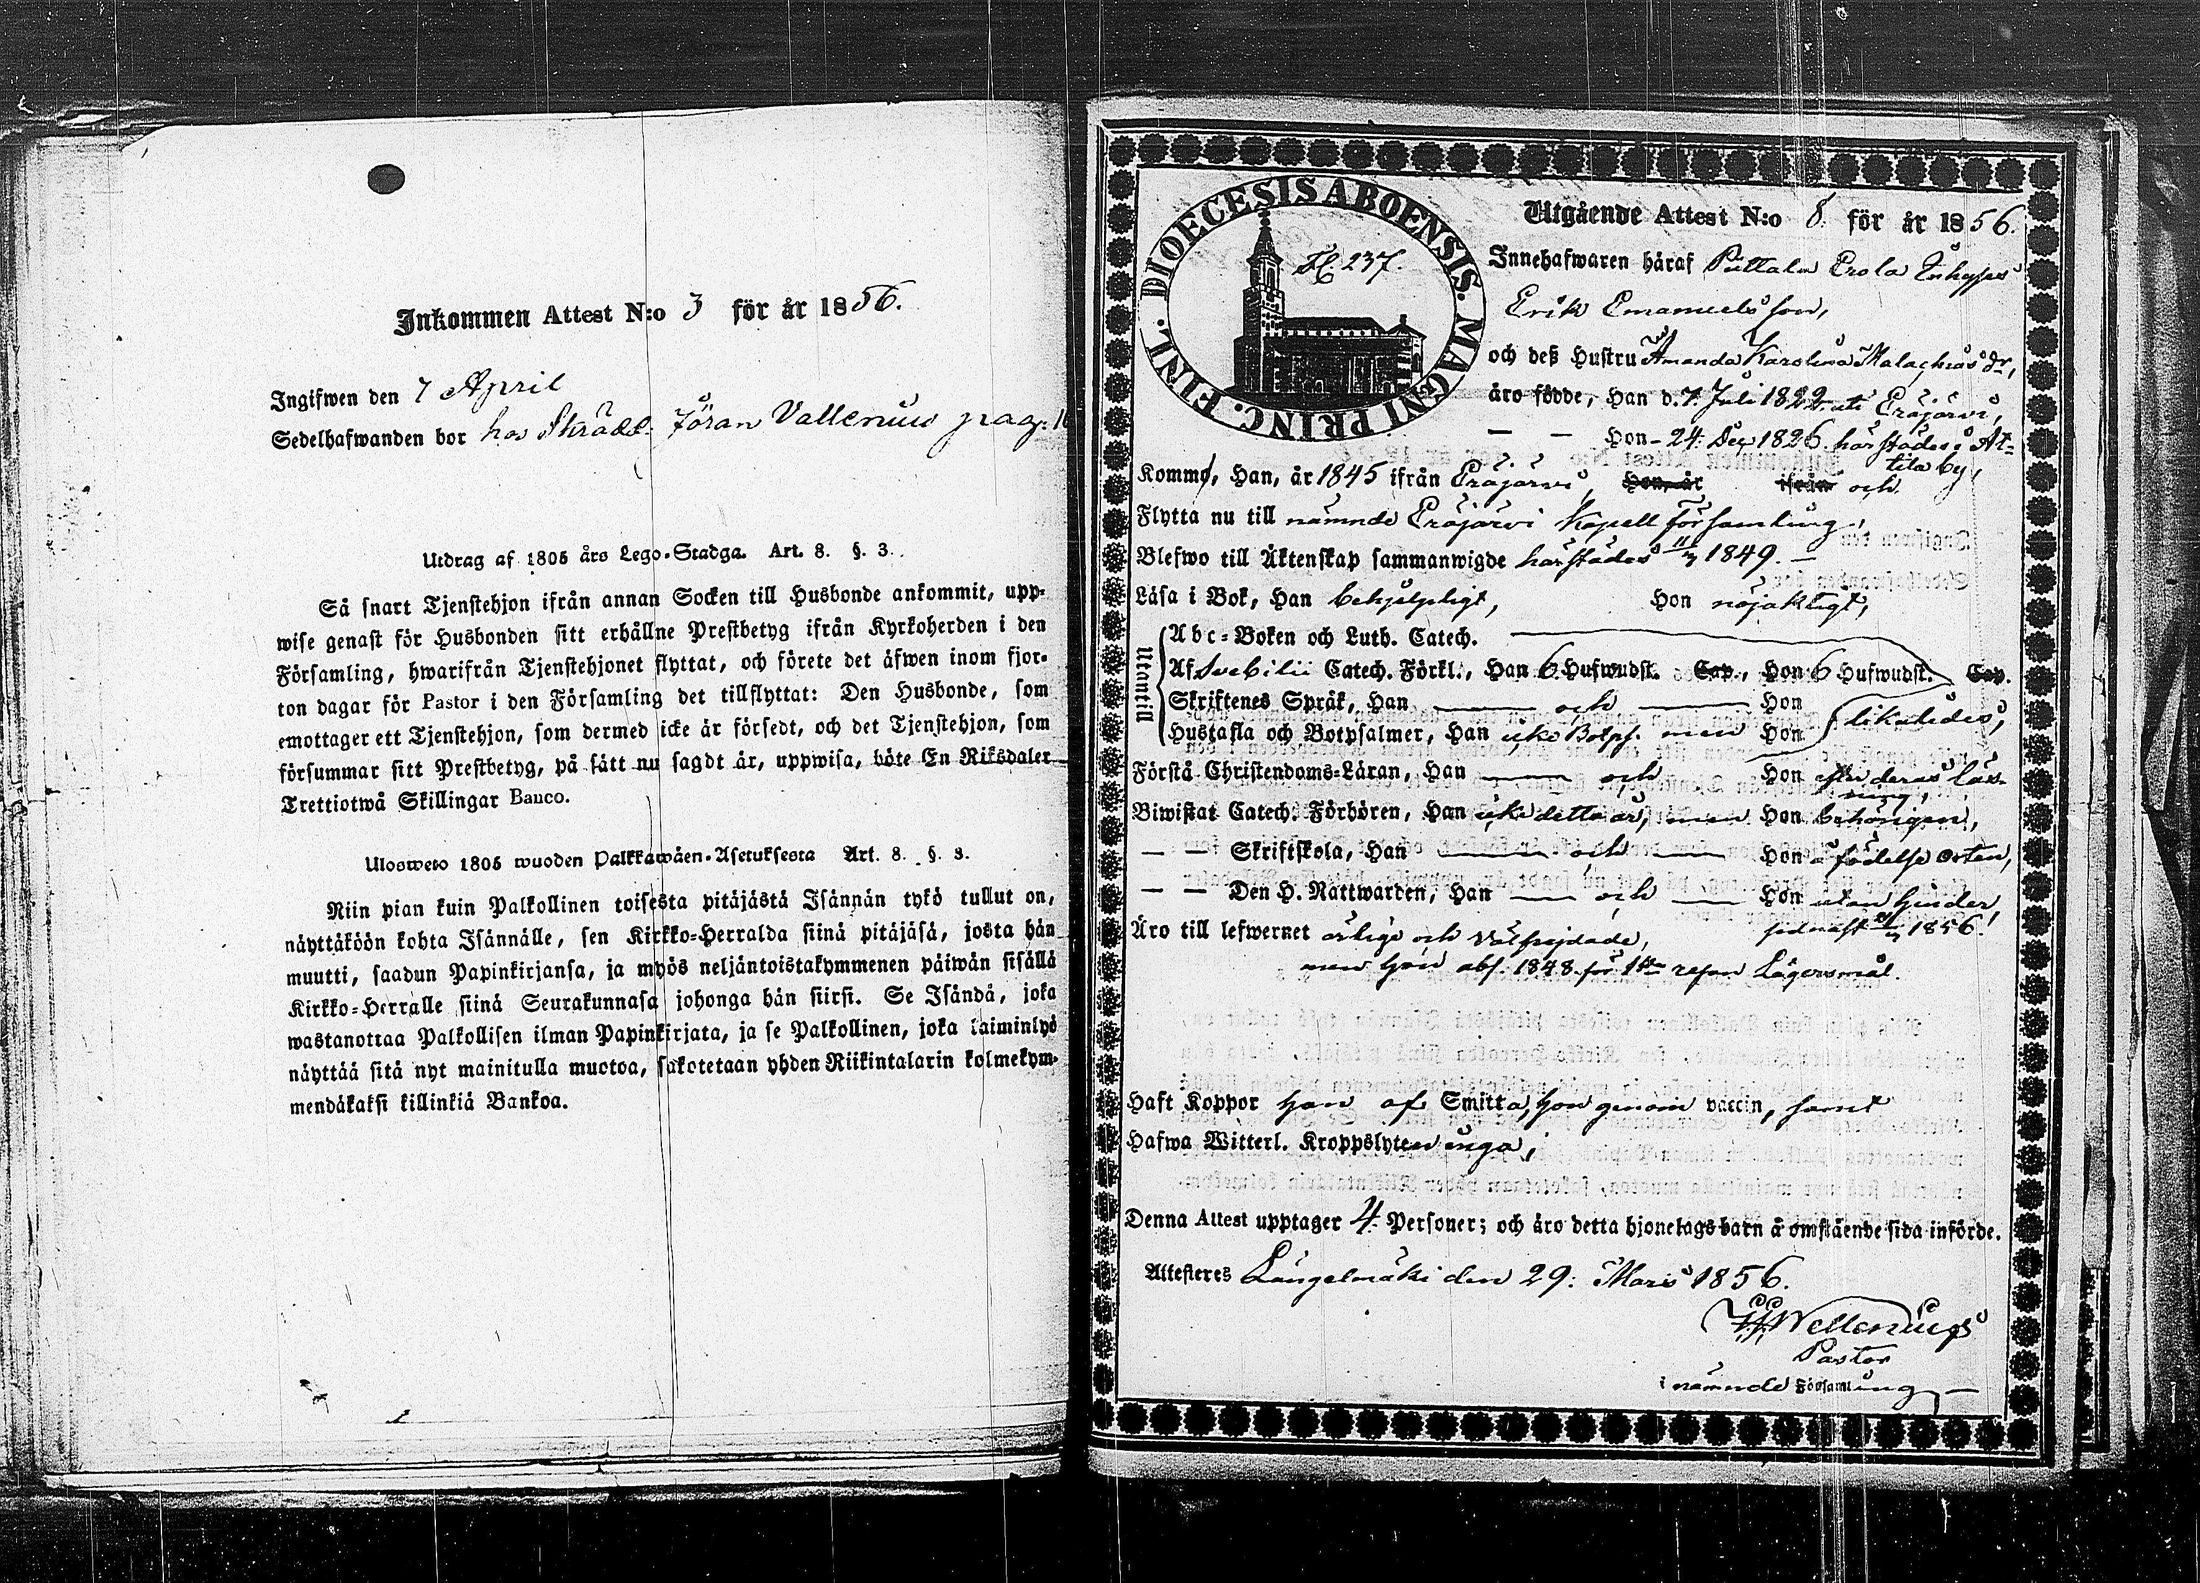 Inkommen Attest N:o 3 för år 1856.
Ingifwen den 7 April
Sedelhafwanden bor hos Skrädd. Jöran Vallenius pag: 1
Utdrag af 1805 års Lego-Stadga. Art. 8. §. 3.
Så snart Tjenstehjon ifrån annan Socken till Husbonde ankommit, upp-
wise genast för Husbonden sitt erhållne Prestbetyg ifrån Kyrkoherden i den
Församling, hwarifrån Tjenstehjonet flyttat, och förete det äfwen inom fjor-
ton dagar för Pastor i den Församling det tillflyttat: Den Husbonde, som
emottager ett Tjenstehjon, som dermed icke är försedt, och det Tjenstehjon, som
försummar sitt Prestbetyg, på sätt nu sagdt är, uppwisa, böte En Riksdaler
Trettiotwå Skillingar Banco.
Ulosweto 1805 wuoden Palkkawäen-Asetuksesta Art. 8. §. 3.
Niin pian kuin Palkollinen toisesta pitäjästä Isännän tykö tullut on,
näyttäköön kohta Isännälle, sen Kirkko-Herralda siinä pitäjäsä, josta hän
muutti, saadun Papinkirjansa, ja myös neljäntoistakymmenen päiwän sisällä
Kirkko-Herralle siinä Seurakunnasa johonga hän siirsi. Se Isändä, joka
wastanottaa Palkollisen ilman Papinkirjata, ja se Palkollinen, joka laiminlyö
näyttää sitä nyt mainitulla muotoa, sakotetaan yhden Riikintalarin kolmekym-
mendäkaksi killinkiä Bankoa.
DIOECESIS ABOENSIS. MAGNI PRINC. FINL.
237.
Utgående Attest N:o 8. för år 1856.
Innehafwaren häraf Puttala Erola Inhyses
Erik Emanuelsson,
och deß Hustru Amanda Karolina Malachiasdr,
äro födde, Han d. 7. Juli 1822 uti Eräjärvi,
— — Hon - 24. Dec 1826. härstädes i At-
tila by,
Kommo, Han, år 1845 ifrån Eräjärvi, Hon, år ifrån och
Flytta nu till nämnde Eräjärvi Kapell församling,
Blefwo till Äktenskap sammanwigde härstädes 1849. —
Läsa i Bok, Han behjelpligt, Hon nöjaktigt,
Utantill
Abc-Boken och Luth. Catech.
Af Svebilii Catech. Förkl., Han 6 Hufwudst. Cap., Hon 6 Hufwudst. Cap.
Skriftenes Språk, Han — och — Hon
Hustafla och Botpsalmer, Han icke Botps. men Hon likaledes,
Förstå Christendoms-Läran, Han — och Hon efter deras läs-
ning,
Biwistat Catech. Förhören, Han icke detta år, men Hon behörigen,
— — Skriftskola, Han — och — Hon å födelse orten,
— — Den H. Nattwarden, Han — och — Hon utan hinder,
sednast 1856.
Äro till lefwernet ärlige och välfrejdade,
men Hon abs. 1848 för 1sta resan Lägersmål.
Haft Koppor Han af Smitta, Hon genom vaccin, samt
Hafwa Witterl. Kroppslyten inga,
Denna Attest upptager 4. Personer; och äro detta hjonelags barn å omstående sida införde.
Attesteres Längelmäki den 29. Mars 1856.
Wellenius
Pastor
i nämnde Församlung